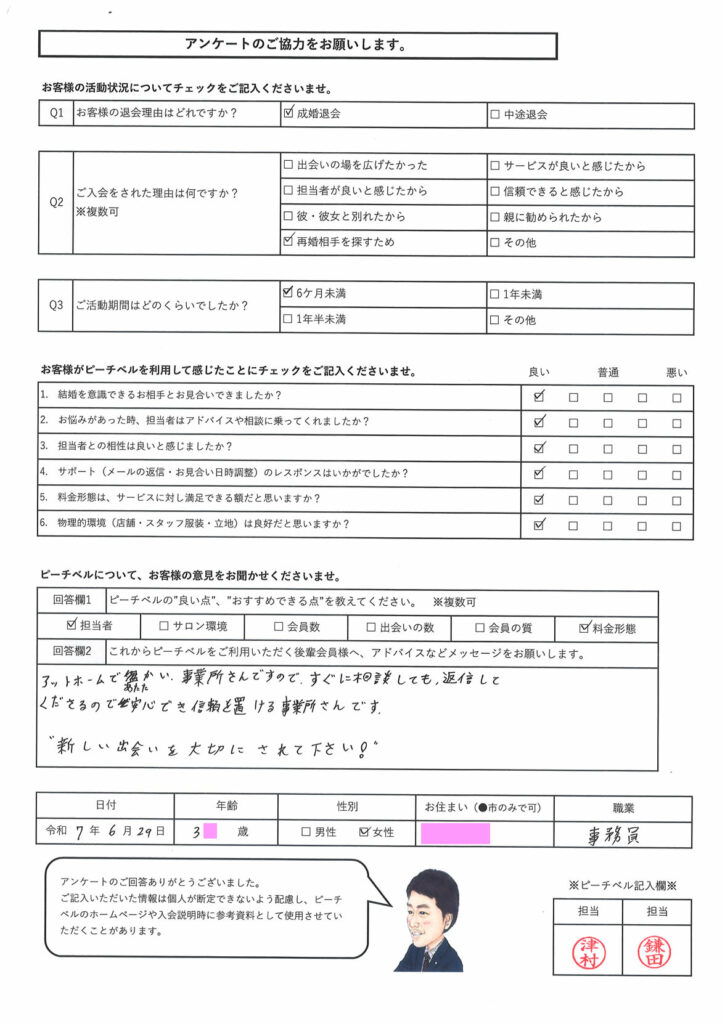 アンケートのご協力をお願いします。
お客様の活動状況についてチェックをご記入くださいませ。
Q1 お客様の退会理由はどれですか？ ☑ 成婚退会 □ 中途退会
Q2 ご入会をされた理由は何ですか？ ※複数可
□ 出会いの場を広げたかった □ サービスが良いと感じたから
□ 担当者が良いと感じたから □ 信頼できると感じたから
□ 彼・彼女と別れたから □ 親に勧められたから
☑ 再婚相手を探すため □ その他
Q3 ご活動期間はどのくらいでしたか？
☑ 6ケ月未満 □ 1年未満
□ 1年半未満 □ その他
お客様がピーチベルを利用して感じたことにチェックをご記入くださいませ。 良い 普通 悪い
1. 結婚を意識できるお相手とお見合いできましたか？ ☑ □ □ □ □
2. お悩みがあった時、担当者はアドバイスや相談に乗ってくれましたか？ ☑ □ □ □ □
3. 担当者との相性は良いと感じましたか？ ☑ □ □ □ □
4. サポート（メールの返信・お見合い日時調整）のレスポンスはいかがでしたか？ ☑ □ □ □ □
5. 料金形態は、サービスに対し満足できる額だと思いますか？ ☑ □ □ □ □
6. 物理的環境（店舗・スタッフ服装・立地）は良好だと思いますか？ ☑ □ □ □ □
ピーチベルについて、お客様の意見をお聞かせくださいませ。
回答欄1 ピーチベルの"良い点"、"おすすめできる点"を教えてください。 ※複数可
☑ 担当者 □ サロン環境 □ 会員数 □ 出会いの数 □ 会員の質 ☑ 料金形態
回答欄2 これからピーチベルをご利用いただく後輩会員様へ、アドバイスなどメッセージをお願いします。
アットホームで温かい、事業所さんですので、すぐに相談しても、返信して
あたた
くださるので安心でき信頼を置ける事業所さんです。
"新しい出会いを大切にされて下さい！"
日付 年齢 性別 お住まい（●市のみで可） 職業
令和 7 年 6 月 29 日 3 歳 □ 男性 ☑ 女性 事務員
アンケートのご回答ありがとうございました。
ご記入いただいた情報は個人が断定できないよう配慮し、ピーチ
ベルのホームページや入会説明時に参考資料として使用させてい
ただくことがあります。
※ピーチベル記入欄※
担当 担当
津村 鎌田